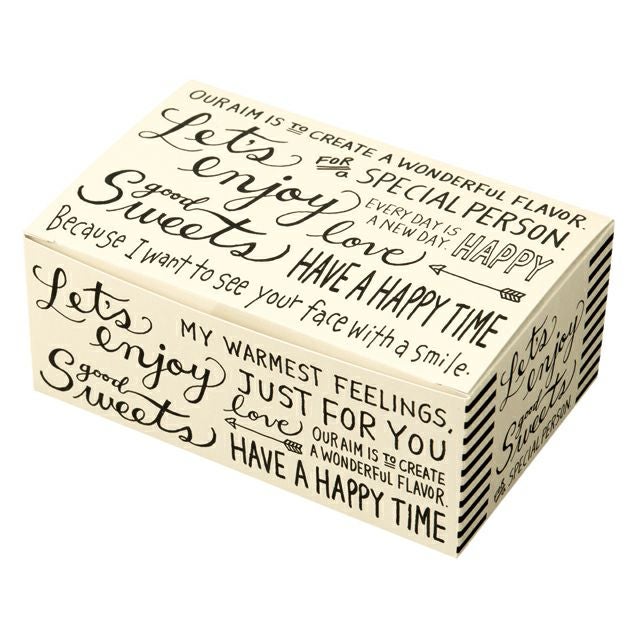 OUR AIM IS TO CREATE A WONDERFUL FLAVOR.
Let's enjoy
good Sweets
FOR a SPECIAL PERSON.
love
EVERY DAY IS
A NEW DAY.
HAPPY
HAVE A HAPPY TIME
Because I want to see your face with a smile.
Let's enjoy
good Sweets
MY WARMEST FEELINGS,
JUST FOR YOU
love
OUR AIM IS TO CREATE
A WONDERFUL FLAVOR.
HAVE A HAPPY TIME
Let's
enjoy
good
Sweets
FOR a SPECIAL PERSON.